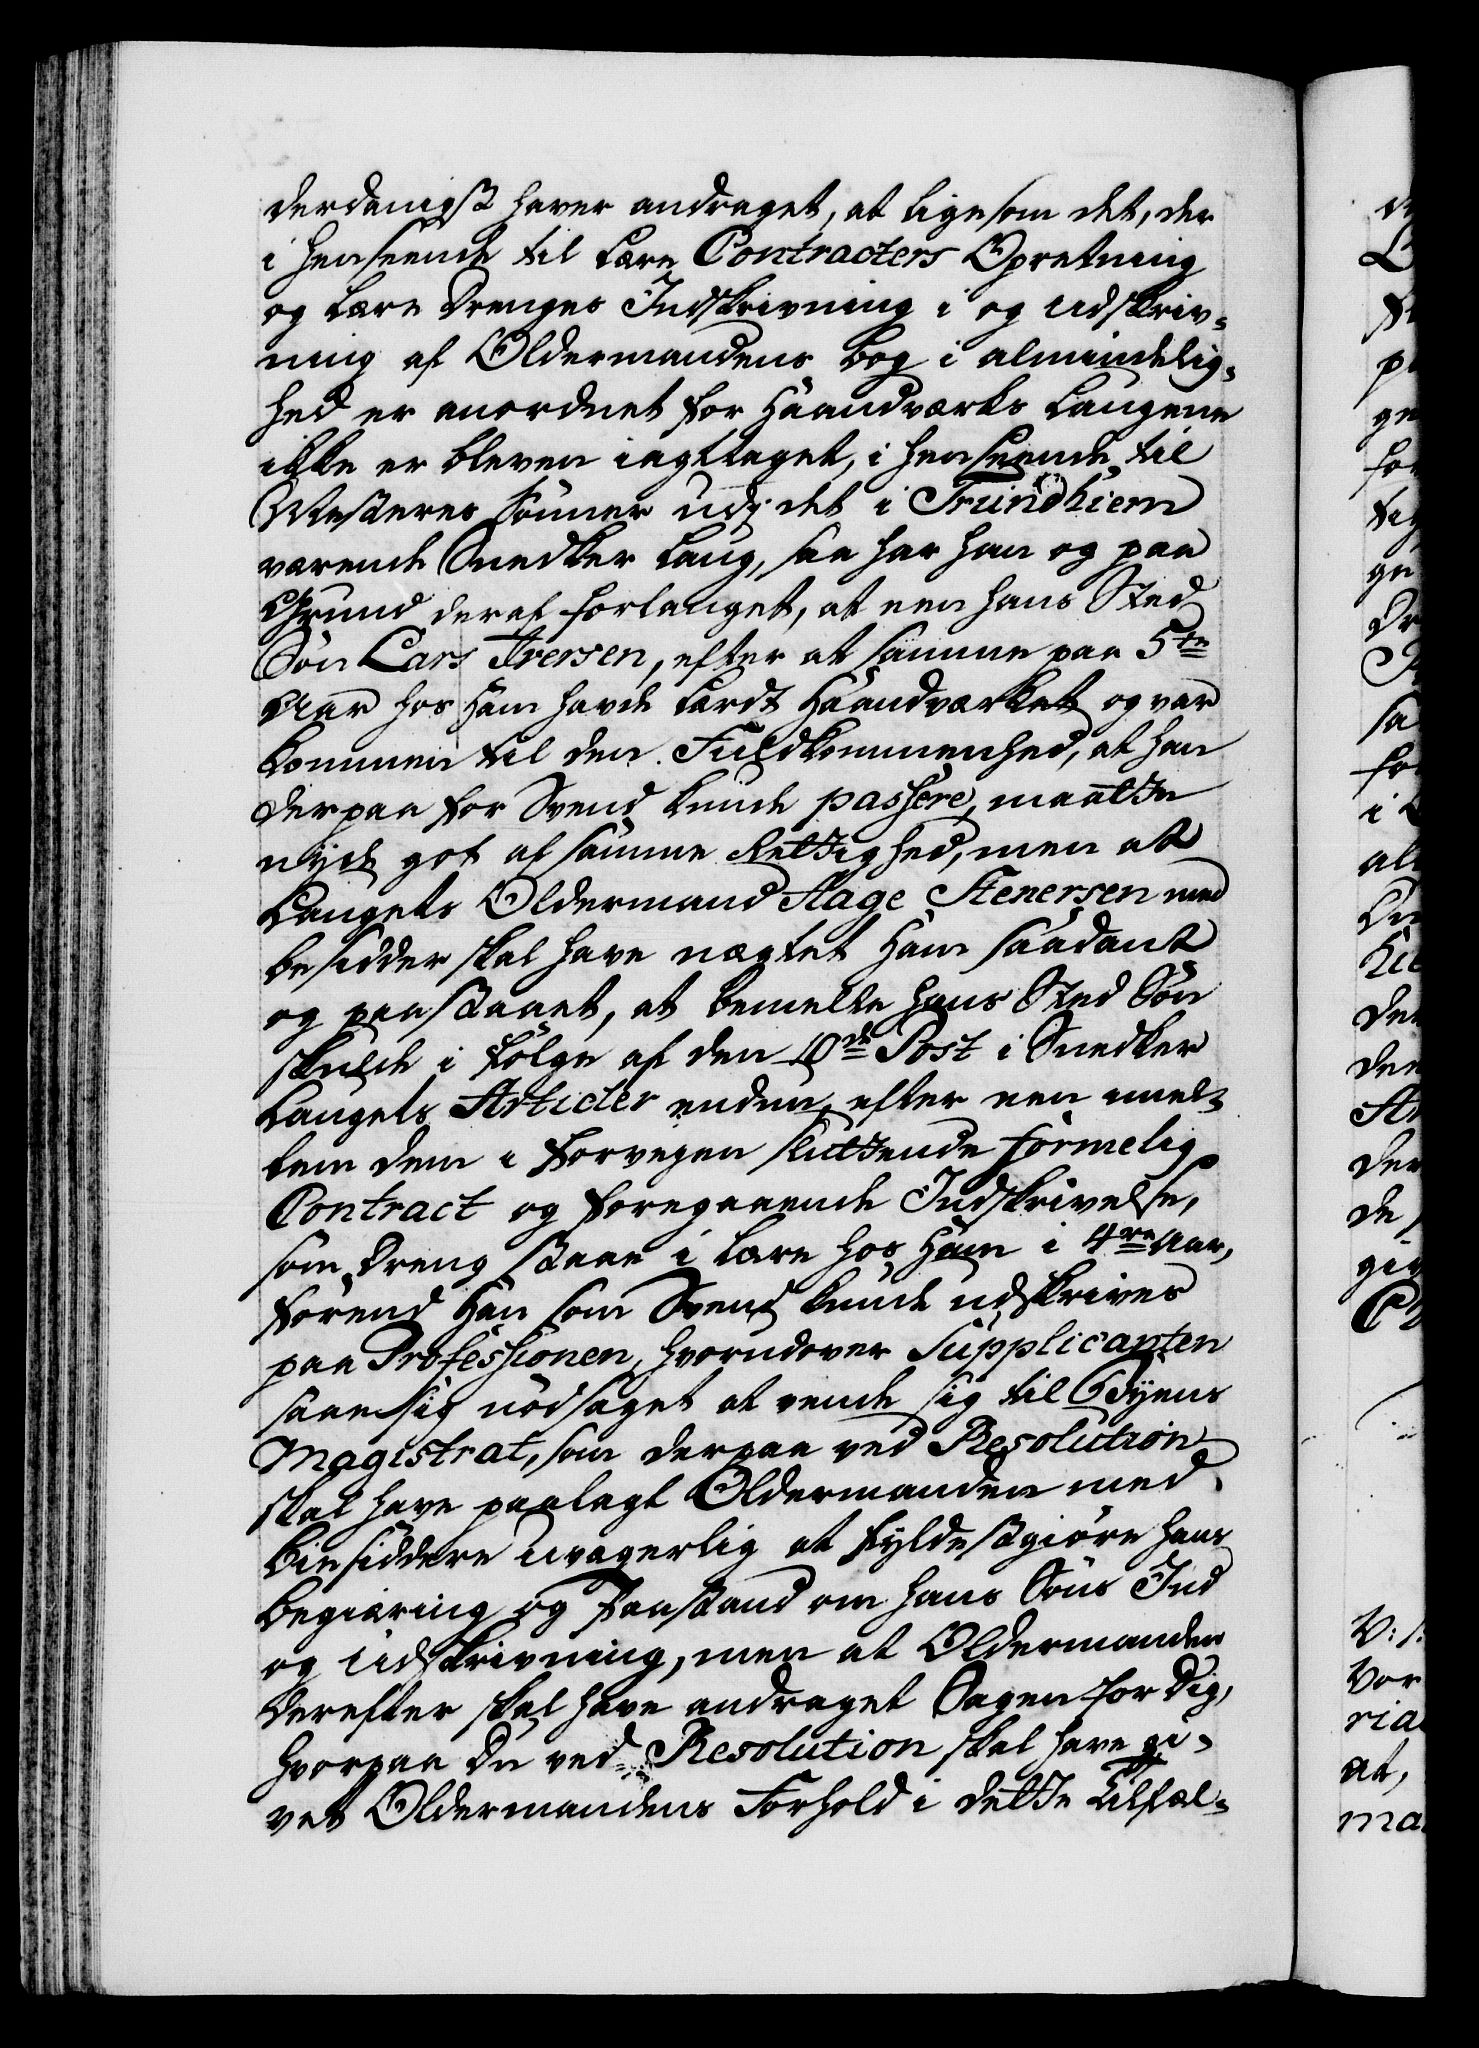 derdanigst haver andraget, at ligesom det, der
i Henseende til Lære Contracters Opretning
og Lære Drenges Indskrivning i og udskriv-
ning af Oldermandens bog i almindelig-
hed er anordnet for Haandværks Laugene
ikke er bleven iagttaget, i henseende til
Mesteres Sønner udj det i Trundhiem
værende Snedker Laug, saa har han og paa
Grund deraf forlanget, at een hans Sted
Søn Lars Iversen, efter at samme paa 5te
Aar hos Ham havde lærdt Haandværket og var
kommen til den Fuldkommenhed, at han
derpaa for Svend kunde passere, maatte
nyde got af samme Rettighed, men at
Laugets Oldermand Aage Stenersen med
besidder skal have nægtet Ham saadant
og paastaaet, at bemelte hans Sted Søn
skulde i følge af den 10de Post i Snedker
Laugets Articler endnu, efter een imel-
lem dem i Forvejen sluttende formelig
Contract og foregaaende Indskrivelse,
som Dreng staae i Lære hos Ham i 4re Aar,
førend Han som Svend kunde udskrives
paa Professionen, hvorudover Supplicanten
saae sig nødsaget at vende sig til Byens
Magistrat, som derpaa ved Resolution
skal have paalagt Oldermanden med
Biesiddere uvægerlig at fyldestgiøre hans
begiæring og Paastand om hans Søns Ind
og Udskrivning, men at Oldermanden
derefter skal have andraget Sagen for Dig,
hvorpaa Du ved Resolution skal have gi-
vet Oldermandens Forhold i dette Tilfæl-